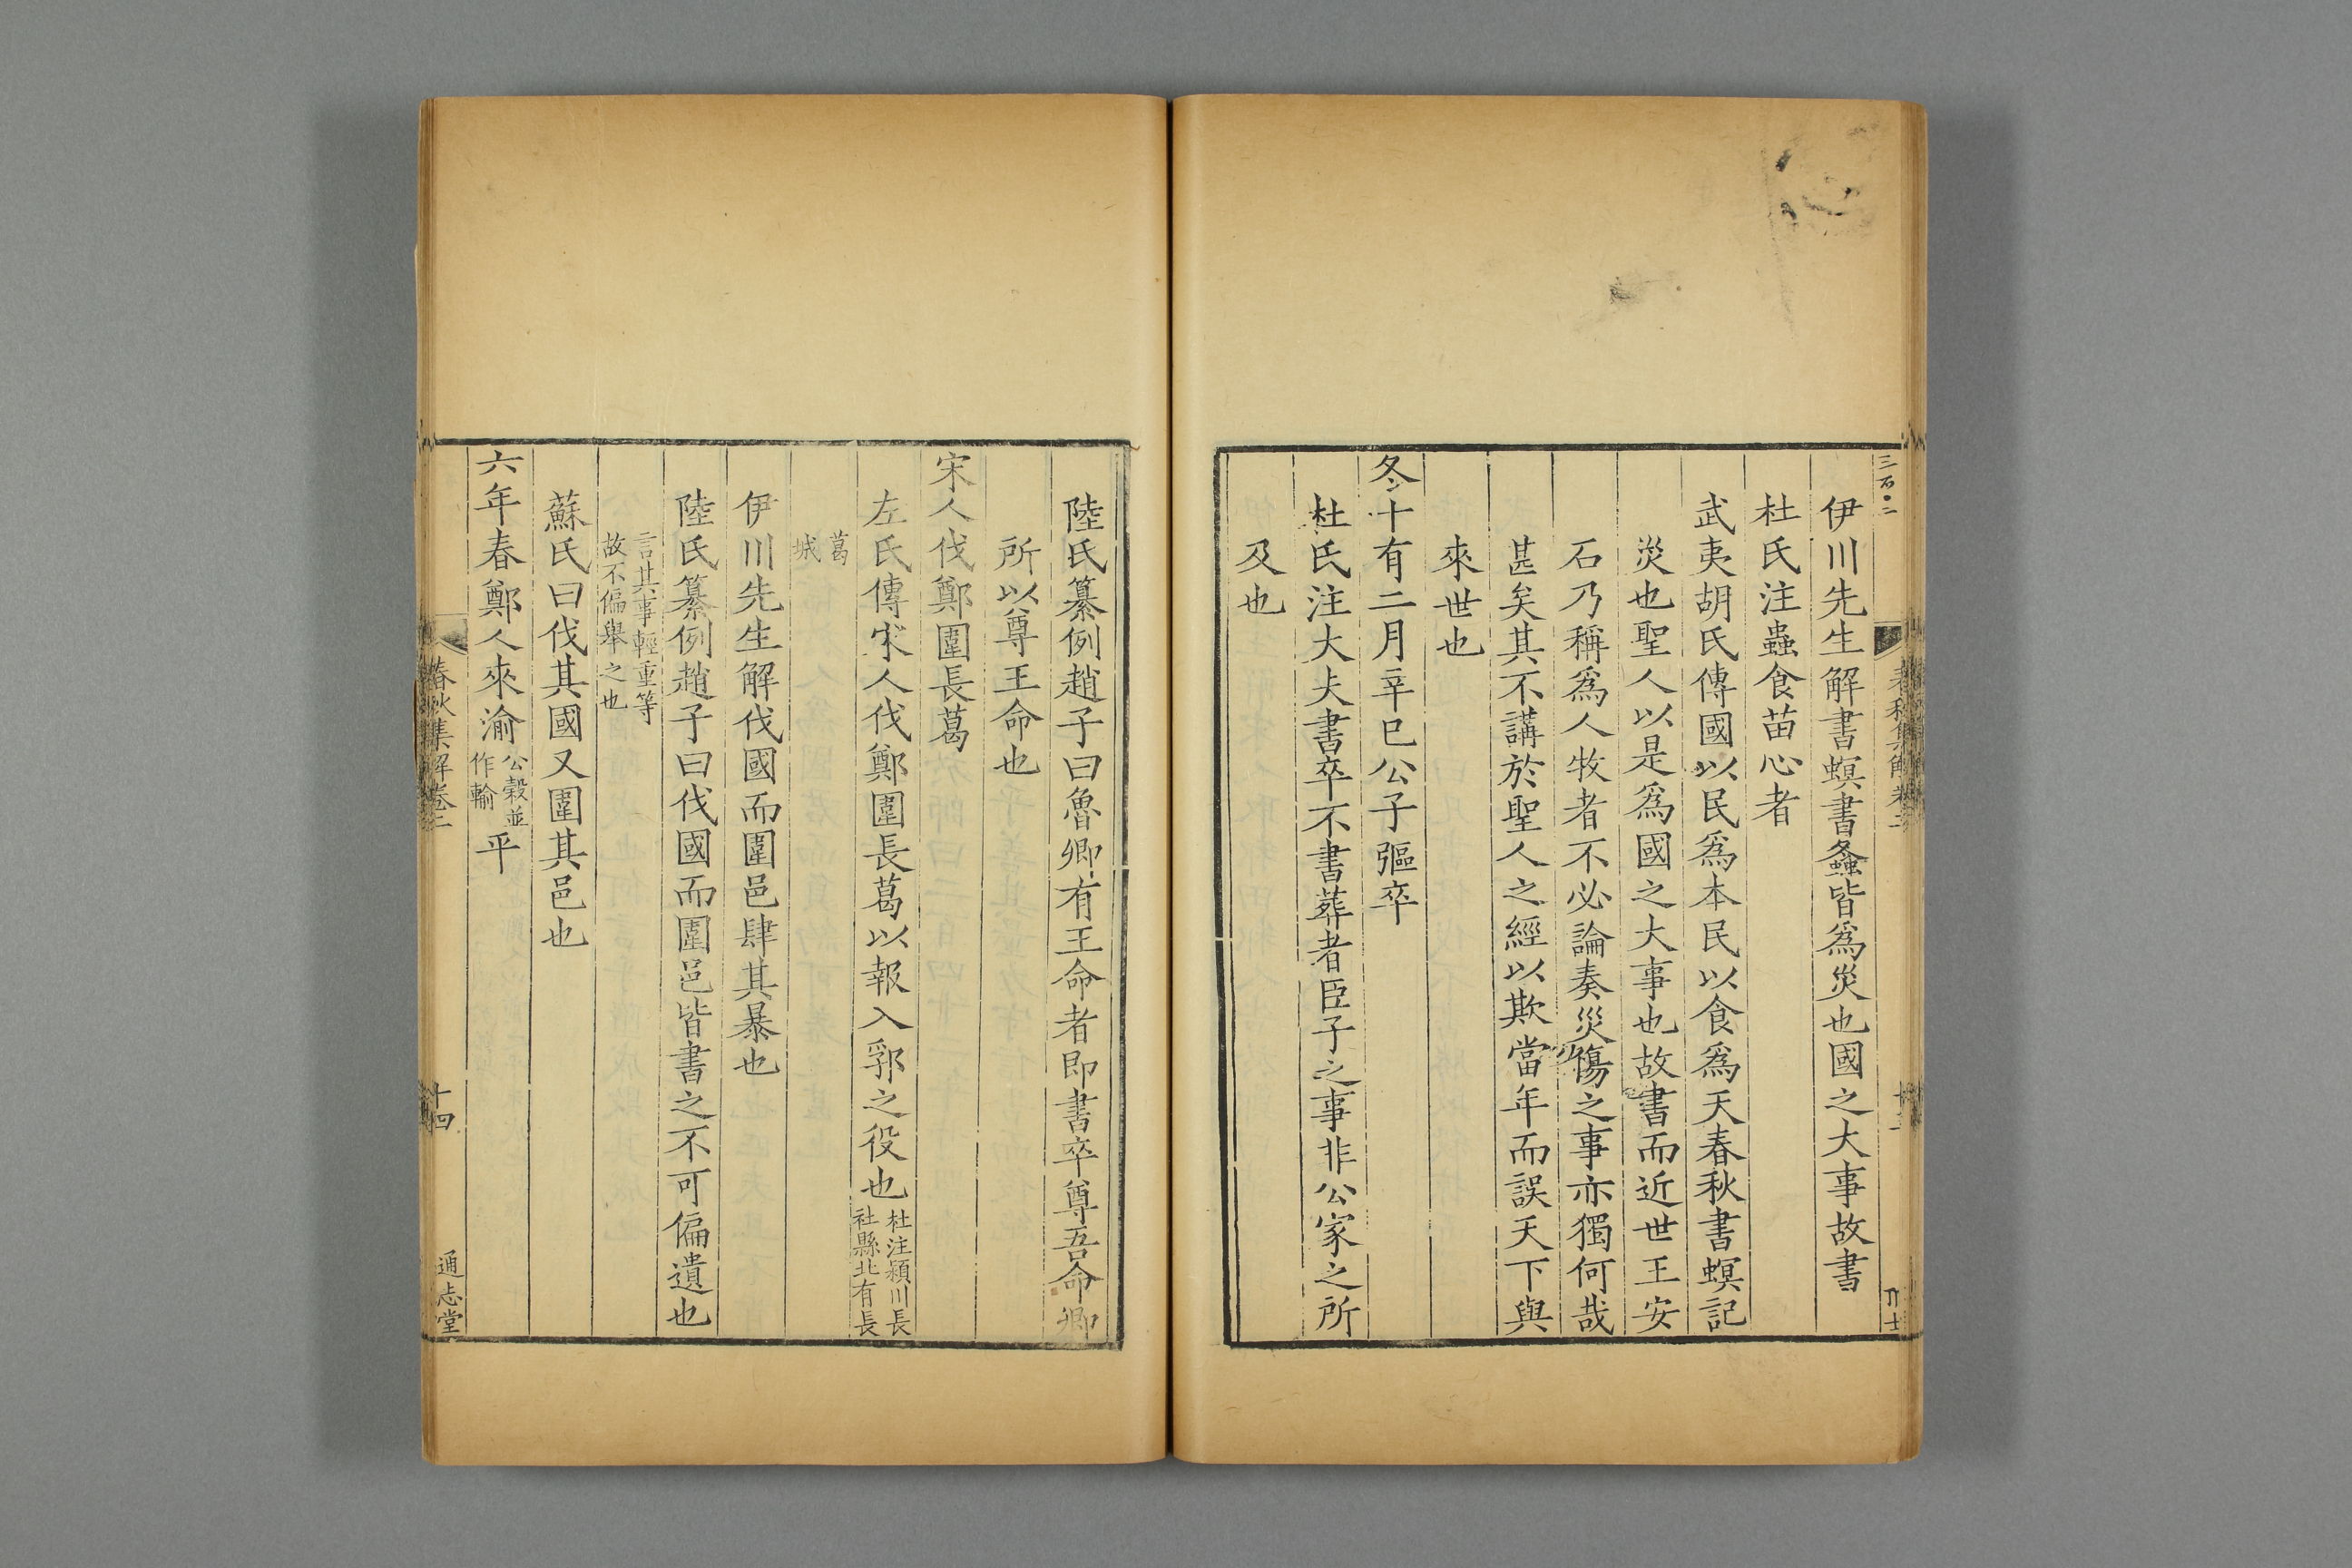 伊川先生解書螟書螽皆爲災也國之大事故書
杜氏注蟲食苗心者
武夷胡氏傳國以民爲本民以食爲天春秋書螟記
災也聖人以是爲國之大事也故書而近世王安
石乃稱爲人牧者不必論奏災傷之事亦獨何哉
甚矣其不講於聖人之經以欺當年而誤天下與
來世也
冬十有二月辛巳公子彄卒
杜氏注大夫書卒不書葬者臣子之事非公家之所
及也
陸氏纂例趙子曰魯卿有王命者即書卒尊吾命卿
所以尊王命也
宋人伐鄭圍長葛
左氏傳宋人伐鄭圍長葛以報入郛之役也杜注潁川長社縣北有長
葛城
伊川先生解伐國而圍邑肆其暴也
陸氏纂例趙子曰伐國而圍邑皆書之不可偏遺也
言其事輕重等故不偏舉之也
蘇氏曰伐其國又圍其邑也
六年春鄭人來渝公穀並作輸平
春秋集解卷二
十四
通志堂